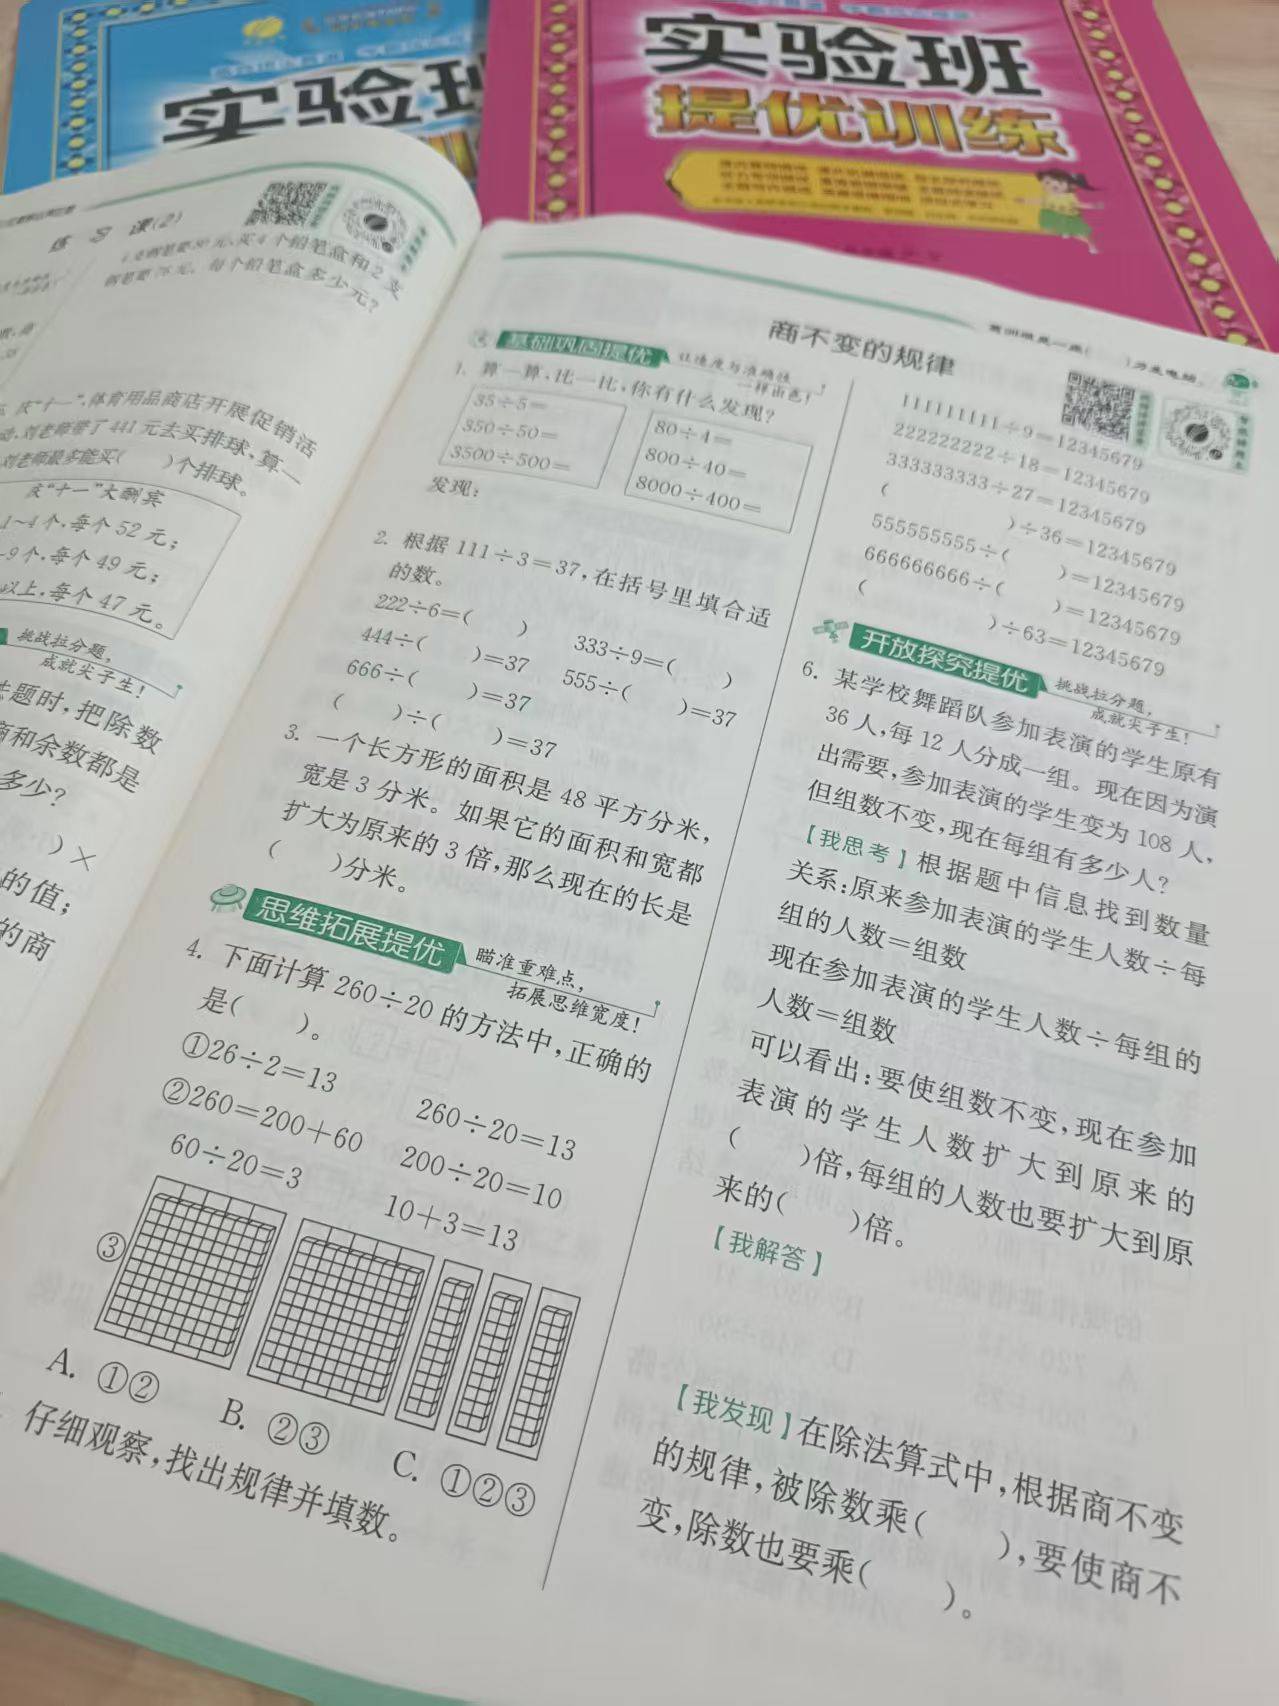 实验班
实验班
提优训练
练习课(2)
买4个铅笔盒和2支
每个铅笔盒多少元?
体育用品商店开展促销活
刘老师带了441元去买排球,算一
刘老师最多能买(  )个排球。
庆“十一”大酬宾
1~4个,每个52元;
9个,每个49元;
以上,每个47元。
挑战拉分题,
成就尖子生!
题时,把除数
商和余数都是
多少?
)×
的值;
的商
商不变的规律
基础巩固提优
让速度与准确性
一样出色!
1. 算一算,比一比,你有什么发现?
35÷5=
350÷50=
3500÷500=
80÷4=
800÷40=
8000÷400=
发现:
2. 根据111÷3=37,在括号里填合适
的数。
222÷6=(  )  333÷9=(  )
444÷(  )=37  555÷(  )=37
666÷(  )=37
(  )÷(  )=37
3. 一个长方形的面积是48平方分米,
宽是3分米。如果它的面积和宽都
扩大为原来的3倍,那么现在的长是
(  )分米。
思维拓展提优
瞄准重难点,
拓展思维宽度!
4. 下面计算260÷20的方法中,正确的
是(  )。
①26÷2=13  260÷20=13
②260=200+60  200÷20=10
60÷20=3  10+3=13
③
A. ①②  B. ②③  C. ①②③
仔细观察,找出规律并填数。
111111111÷9=12345679
222222222÷18=12345679
333333333÷27=12345679
(  )÷36=12345679
555555555÷(  )=12345679
666666666÷(  )=12345679
(  )÷63=12345679
开放探究提优
挑战拉分题,
成就尖子生!
6. 某学校舞蹈队参加表演的学生原有
36人,每12人分成一组。现在因为演
出需要,参加表演的学生变为108人,
但组数不变,现在每组有多少人?
【我思考】根据题中信息找到数量
关系:原来参加表演的学生人数÷每
组的人数=组数
现在参加表演的学生人数÷每组的
人数=组数
可以看出:要使组数不变,现在参加
表演的学生人数扩大到原来的
(  )倍,每组的人数也要扩大到原
来的(  )倍。
【我解答】
【我发现】在除法算式中,根据商不变
的规律,被除数乘(  ),要使商不
变,除数也要乘(  )。